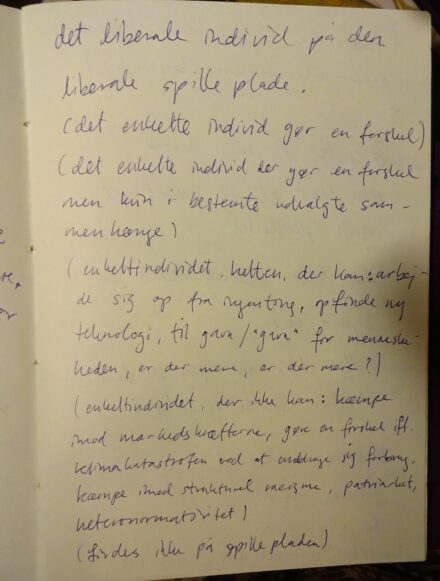 det liberale individ på den
liberale spilleplade.
(det enkelte individ gør en forskel)
(det enkelte individ der gør en forskel
men kun i bestemte udvalgte sam-
menhænge)
(enkeltindividet, helten, der kan: arbej-
de sig op fra ingenting, opfinde ny
teknologi, til gavn/"gavn" for menneske-
heden, er der mere, er der mere?)
(enkeltindividet, der ikke kan: kæmpe
imod markedskræfterne, gøre en forskel ift.
klimakatastrofen ved at unddrage sig forbrug,
kæmpe imod strukturel racisme, patriarkat,
heteronormativitet)
(findes ikke på spillepladen)